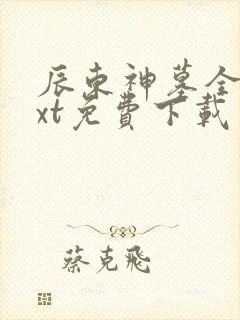 辰東神墓全
xt免費下載
蔡克飛